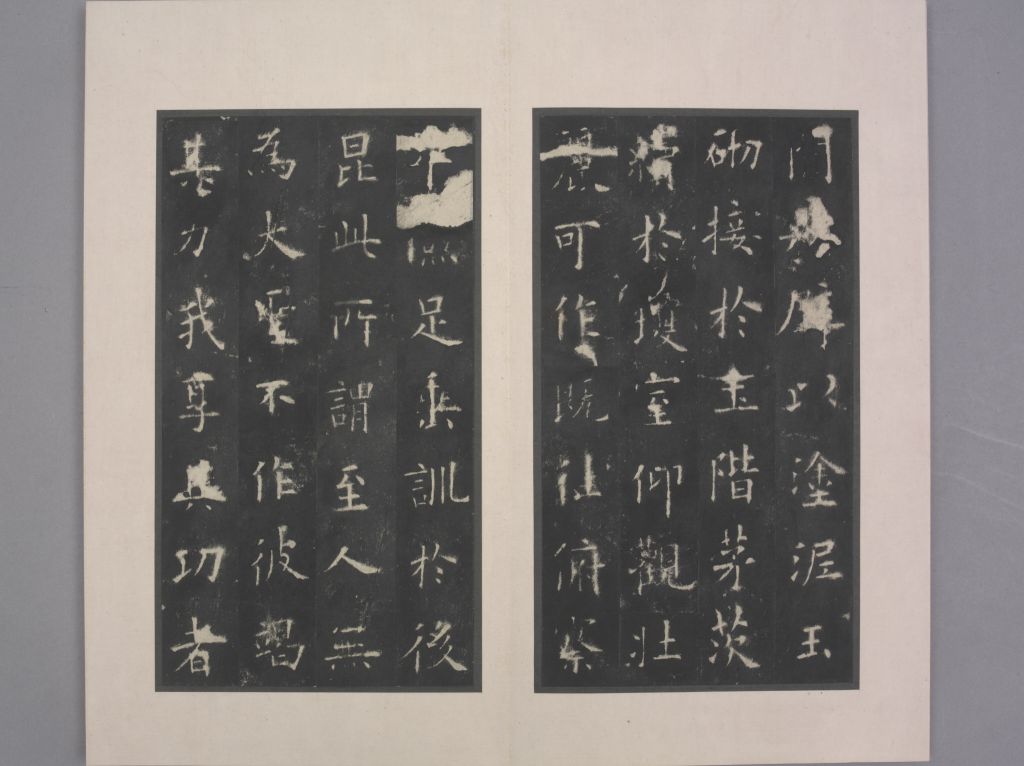 間壁以塗泥玉
砌接於土階茅茨
續於瓊室仰觀壯
麗可作既往俯察
卑足垂訓於後
昆此所謂至人無
為大聖不作彼竭
其力我享其功者